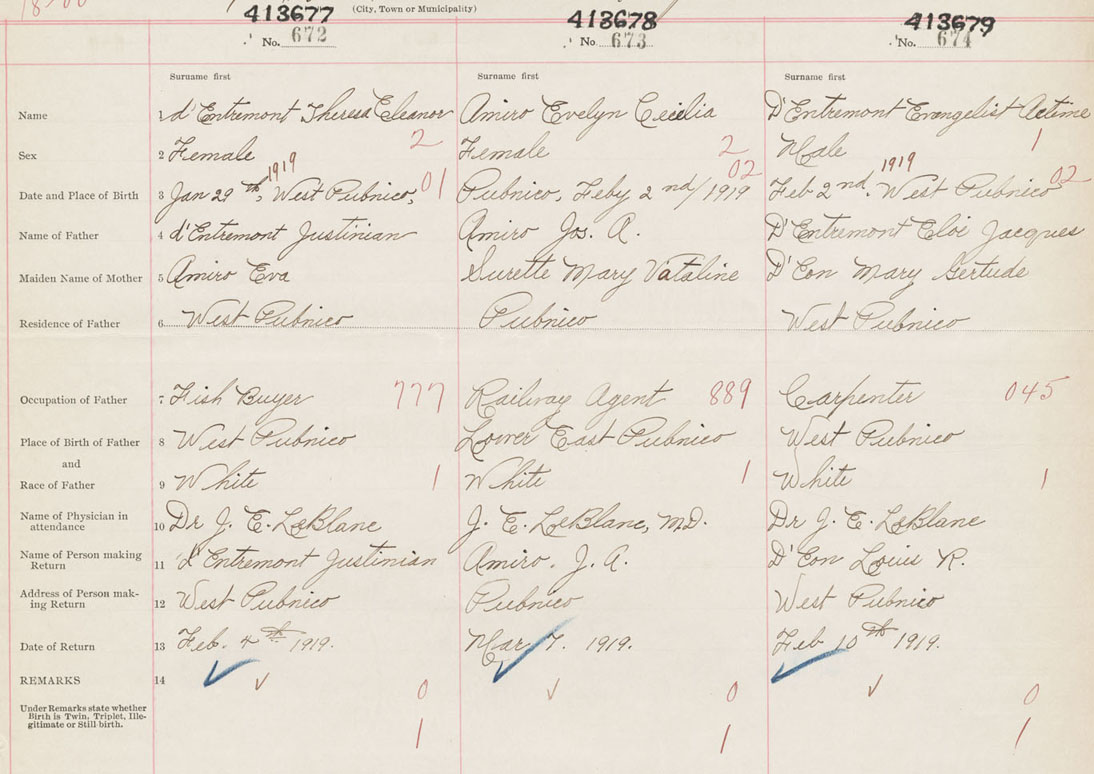 18-00
(City, Town or Municipality)
413677 413678 413679
No. 672 No. 673 No. 674
Surname first Surname first Surname first
Name 1 d'Entremont Theresa Eleanor Amiro Evelyn Cecilia D'Entremont Evangelist Actime
Sex 2 Female 2 Female 2 Male 1
Date and Place of Birth 3 Jan 29th, 1919 West Pubnico, 01 Pubnico, Feby 2nd/1919 02 Feb 2nd. 1919 West Pubnico 02
Name of Father 4 d'Entremont Justinian Amiro Jos. A. D'Entremont Eloi Jacques
Maiden Name of Mother 5 Amiro Eva Surette Mary Vataline D'Eon Mary Gertude
Residence of Father 6 West Pubnico Pubnico West Pubnico
Occupation of Father 7 Fish Buyer 777 Railway Agent 889 Carpenter 045
Place of Birth of Father 8 West Pubnico Lower East Pubnico West Pubnico
and
Race of Father 9 White 1 White 1 White 1
Name of Physician in
attendance 10 Dr J. E. LeBlanc J. E. LeBlanc, M.D. Dr J. E. LeBlanc
Name of Person making
Return 11 d'Entremont Justinian Amiro, J. A. D'Eon Louis R.
Address of Person mak-
ing Return 12 West Pubnico Pubnico West Pubnico
Date of Return 13 Feb. 4th 1919. Mar 7. 1919. Feb 10th 1919.
REMARKS 14 0 0 0
Under Remarks state whether
Birth is Twin, Triplet, Ille-
gitimate or Still birth. 1 1 1